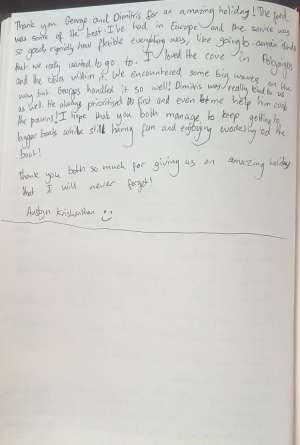 Thank you George and Dimitris for an amazing holiday! The food
was some of the best I've had in Europe and the service was
so good especially how flexible everything was, like going to certain
that we really wanted to go to. I loved the cove in Polyaigos
and the caves within it. We encountered some big waves on the
way but George handled it so well! Dimitris was really kind to us
as well. He always prioritised us first and even let me help him cook
the prawns! I hope that you both manage to keep getting to
bigger boats while still having fun and enjoying the
boat!
Thank you both so much for giving us an amazing holiday
that I will never forget!
Krishnathan :)